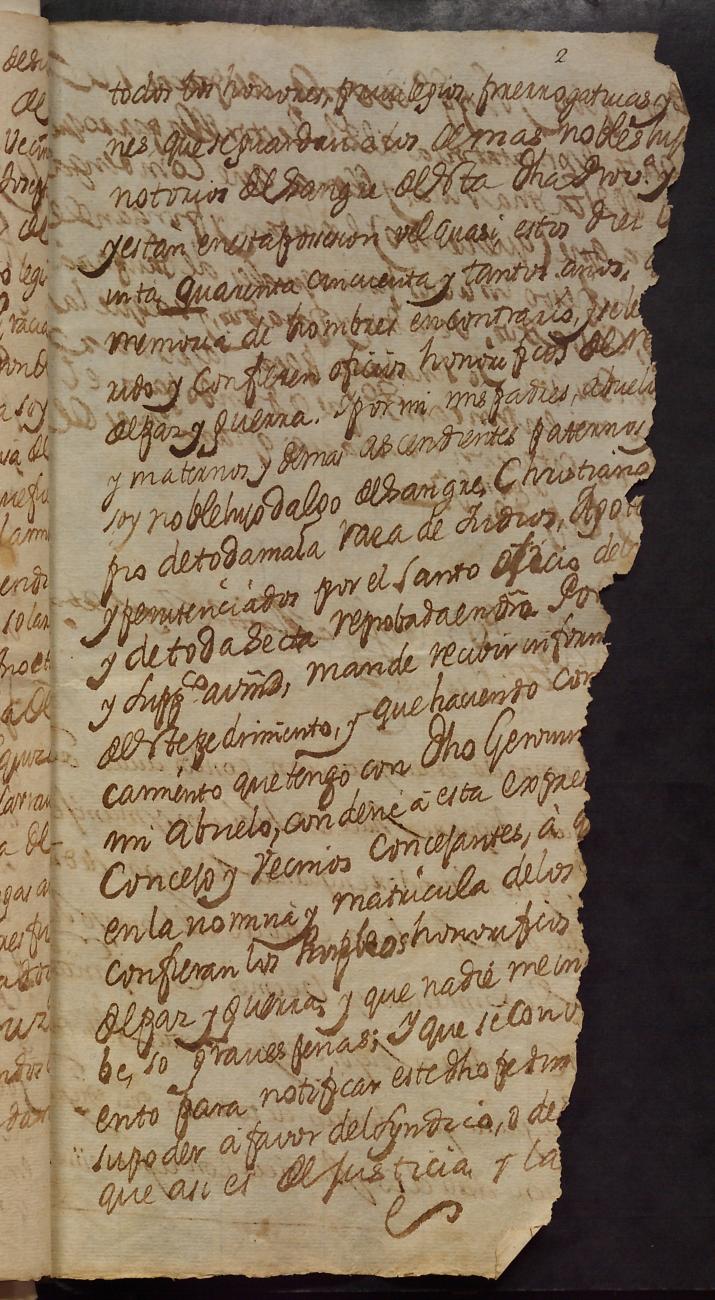 2
todos los honores, privilegios, prerrogatibas y
nes que se guardan a los demas nobles hij
notorios de Sangre de esta dha Prov.ª y
y estan en esta posesion vel quasi, estos diez
inta, quarenta cincuenta y tantos años,
memoria de hombres en contrario, y se le
rido y confieren oficios honorificos de
de paz y guerra. Y por mi mis padres, abuelo
y maternos y demas ascendientes paternos
soy noble hijo dalgo de Sangre, Christiano
pio de toda mala raza de Judios, Agote
y penitenciados por el Santo oficio de
y de toda Secta reprobada en dra Por
y Supp.co a vmd, mande recibir inform
de este pedimiento, y que haciendo con
camiento que tengo con dho Geronim
mi Abuelo, condene a esta expre
Concejo y Vecinos Concejantes, à
en la nomina y matricula de los
confieran los Empleos honorificos
de paz y guerra, y que nadie me in
be, so graves penas; y que se con
ento para notificar este dho pedim
su poder a favor del Syndico, o de
que asi es de Justicia y la